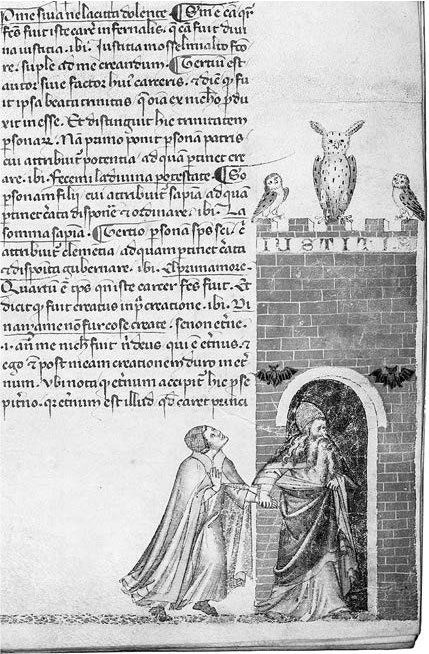 P me si va nela citta dolente. ¶ cā qr
fcō fuit iste carcer infernalis. q̄ cā fuit diui
na iustitia. ibi. Iustitia mosse l mi alto fcō
re. suple ad me creandum. ¶ Tertiū est
autor siue factor huiꝰ carceris. ⁊ dicit q̄ fu
it ipsa beata trinitas. q̄ oīa ex nicho ꝓdu
xit in esse. Et distinguit hic trinitatem
ꝑsonaꝝ. Nā primo ponit ꝑsonā patris
cui attribuit᷑ potentia ad quā ꝑtinet cre
are. ibi. Fecemi la diuina potestate. ¶ So
ꝑsonam filii cui attribuit᷑ sapīa ad quā
ꝑtinet cr̄ata disponē ⁊ ordinare. ibi. La
somma sapīa. ¶ Tertio ꝑsonā sp̄s sc̄i. c̄
attribuit᷑ clemētia ad quam ꝑtinet cr̄ata
⁊ disposita gubernare. ibi. El primo amore.
Quartū ē tp̄s quo iste carcer fc̄s fuit. Et
dicit q̄ fuit creatus in p̄ creatione. ibi. Di
nançi a me non fur cose create. se non et̄ne.
.i. an̄ me nichil fuit nisi deus qui ē et̄nus. ⁊
ego ⁊ post meam creationem duro in et̄
num. Ubi nota q̄ et̄num accipit᷑ hic ꝓ sē
pit̄no. qr et̄num est illud qd̄ caret princi
IUSTITIA